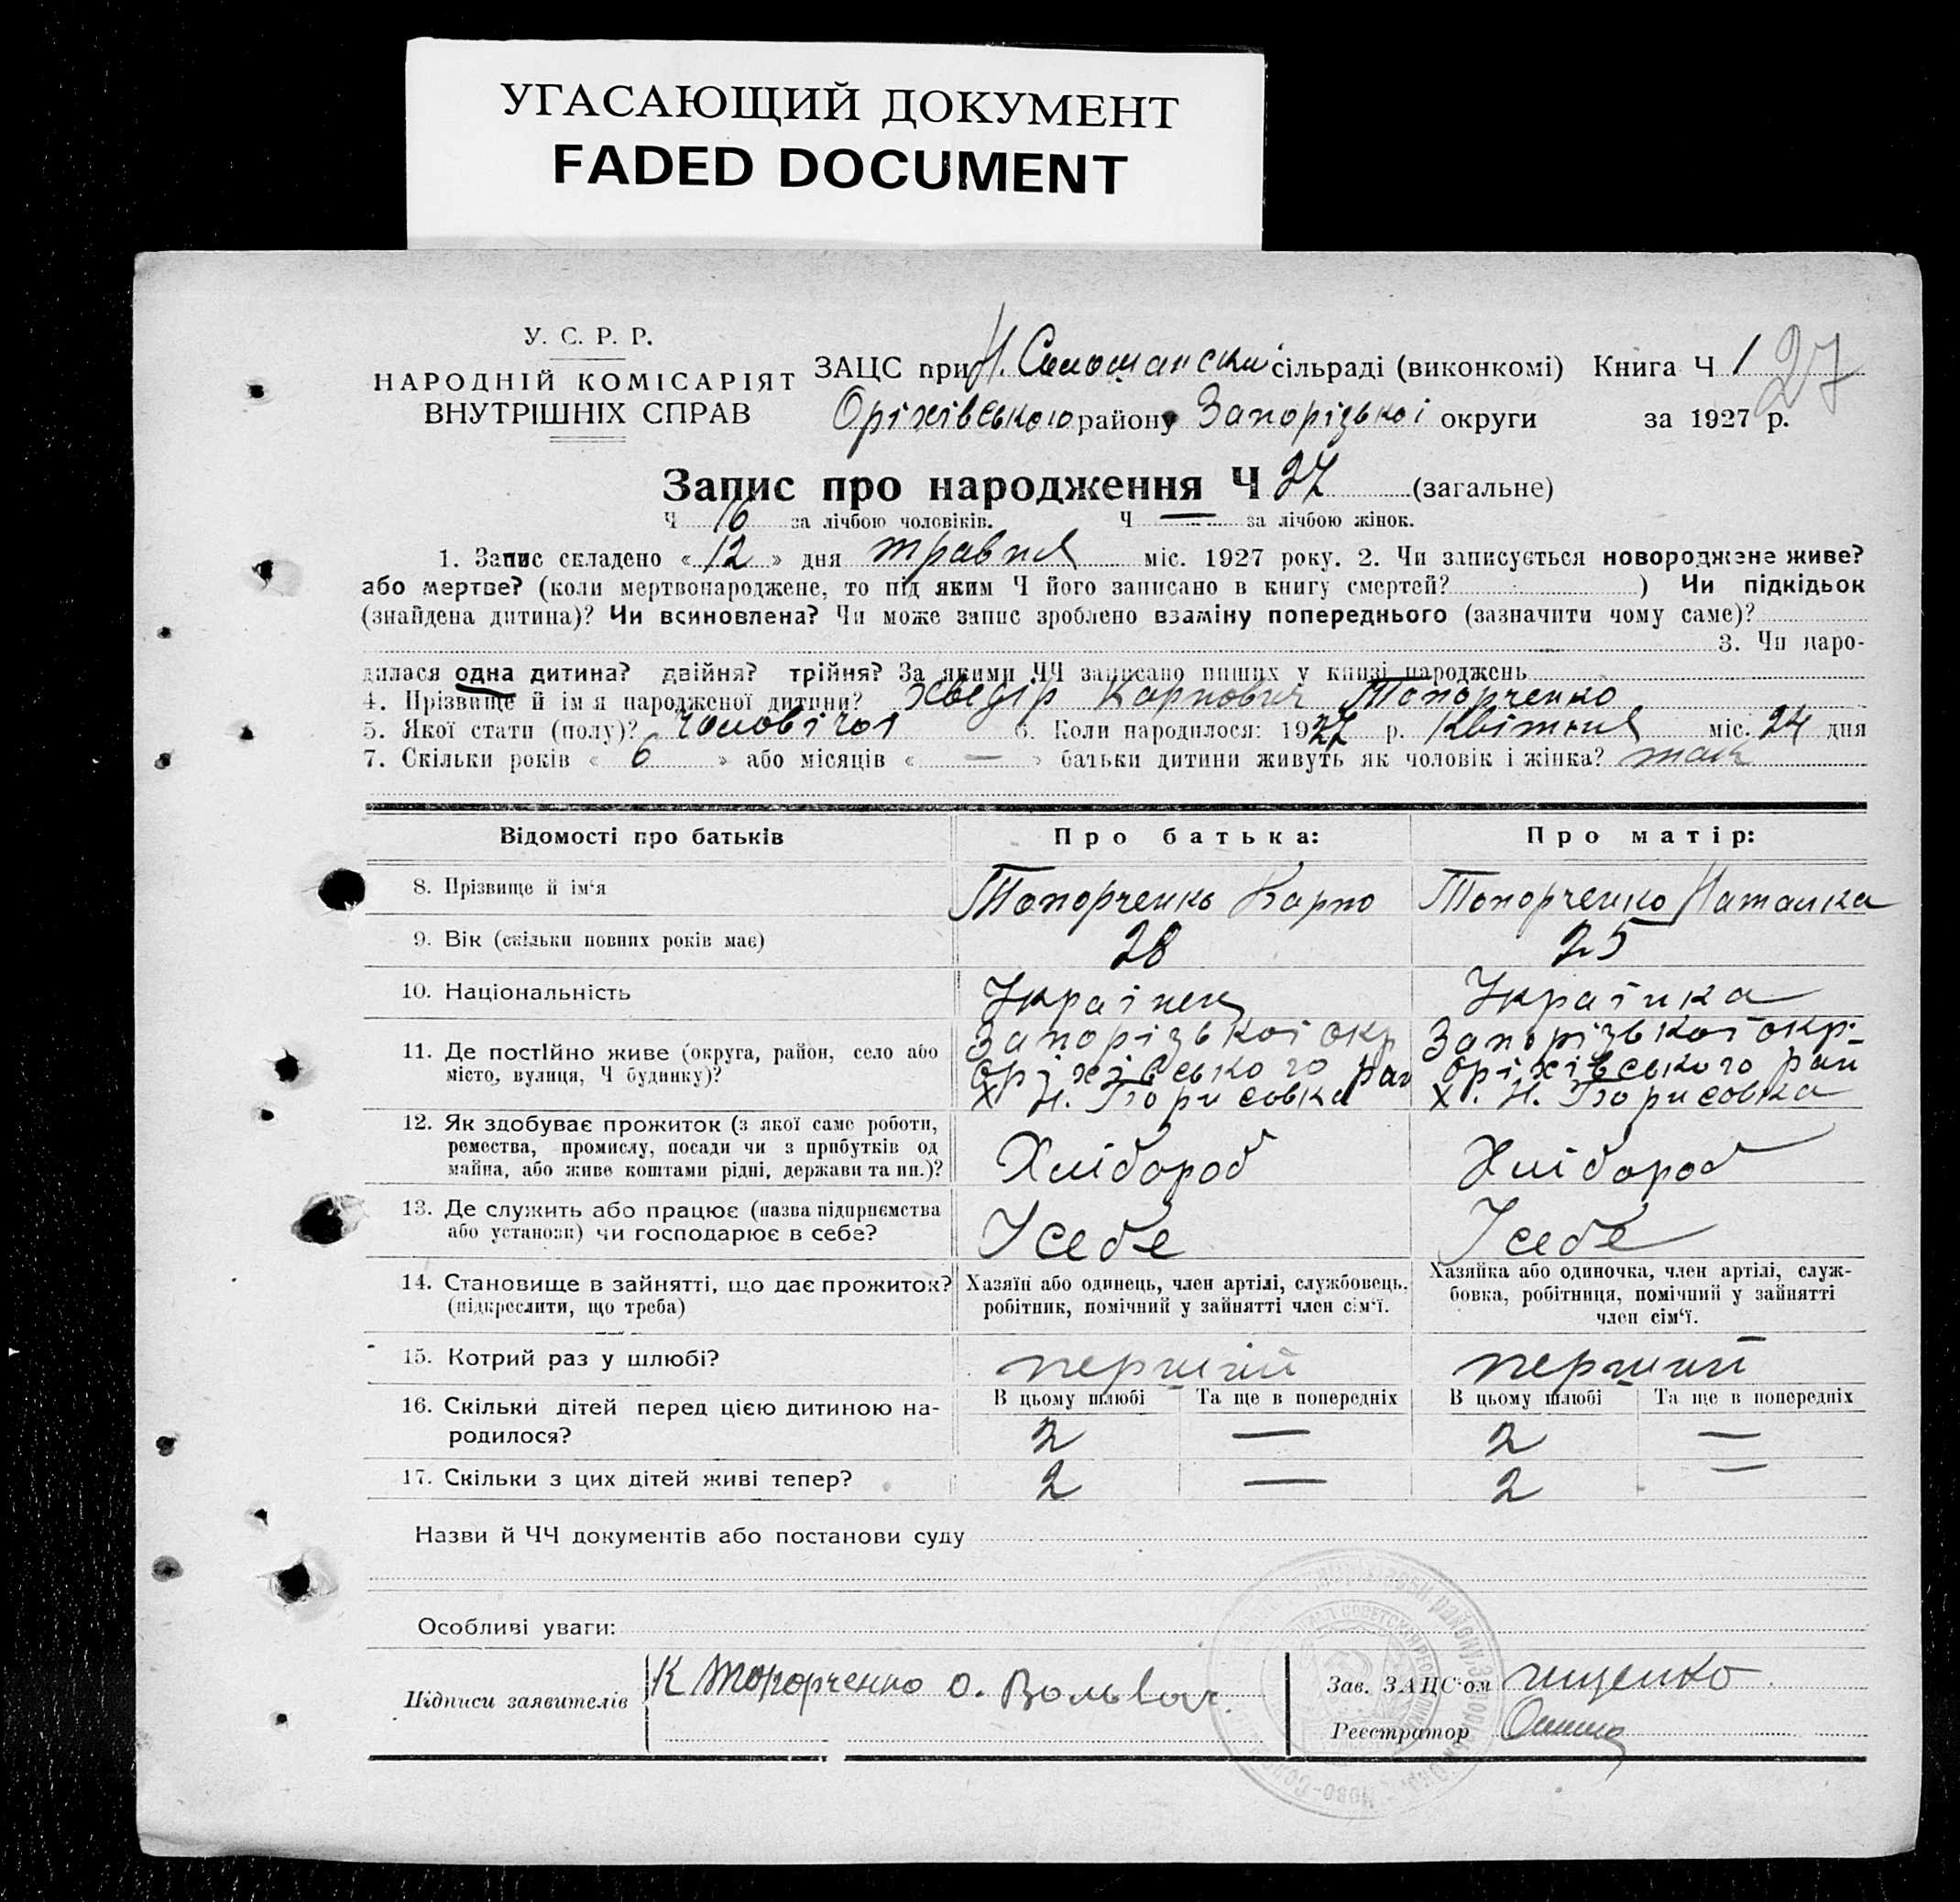 УГАСАЮЩИЙ ДОКУМЕНТ
FADED DOCUMENT
У. С. Р. Р.
НАРОДНІЙ КОМІСАРІЯТ
ВНУТРІШНІХ СПРАВ
ЗАЦС при Н. Солошански сільраді (виконкомі) Книга Ч 1 27
Оріхівською району Запорізькоі округи за 1927 р.
Запис про народження Ч 27 (загальне)
Ч 16 за лічбою чоловіків. Ч — за лічбою жінок.
1. Запис складено « 12 » дня травня міс. 1927 року. 2. Чи записується новороджене живе?
або мертве? (коли мертвонароджене, то під яким Ч його записано в книгу смертей? ) Чи підкідьок
(знайдена дитина)? Чи всиновлена? Чи може запис зроблено взаміну попереднього (зазначити чому саме)?
3. Чи наро-
дилася одна дитина? двійня? трійня? За якими ЧЧ записано инших у книзі народжень
4. Прізвище й ім я народженої дитини? Хведір Карпович Топорченко
5. Якої стати (полу)? чоловічоі 6. Коли народилося: 1927 р. Квітня міс. 24 дня
7. Скільки років « 6 » або місяців « — » батьки дитини живуть як чоловік і жінка? так
Відомості про батьків Про батька: Про матір:
8. Прізвище й ім‘я Топорченко Карпо Топорченко Наталка
9. Вік (скільки повних років має) 28 25
10. Національність Украінец Украінка
11. Де постійно живе (округа, район, село або місто, вулиця, Ч будинку)?
Запорізькоі окр Запорізькоі окр.
Оріхівського рай Оріхівського рай
х. Н. Борисовка х. Н. Борисовка
12. Як здобуває прожиток (з якої саме роботи,
ремества, промислу, посади чи з прибутків од
майна, або живе коштами рідні, держави та ин.)?
Хлібороб Хлібороб
13. Де служить або працює (назва підприємства
або установи) чи господарює в себе?
У себе У себе
14. Становище в зайнятті, що дає прожиток?
(підкреслити, що треба)
Хазяїн або одинець, член артілі, службовець,
робітник, помічний у зайнятті член сім‘ї.
Хазяйка або одиночка, член артілі, служ-
бовка, робітниця, помічний у зайнятті
член сім‘ї.
15. Котрий раз у шлюбі? перший перший
16. Скільки дітей перед цією дитиною на-
родилося?
В цьому шлюбі Та ще в попередніх В цьому шлюбі Та ще в попередніх
2 — 2 —
17. Скільки з цих дітей живі тепер? 2 — 2 —
Назви й ЧЧ документів або постанови суду
Особливі уваги:
Підписи заявителів К Топорченко О. Вольвач
Зав. ЗАЦС‘ом
Реєстратор